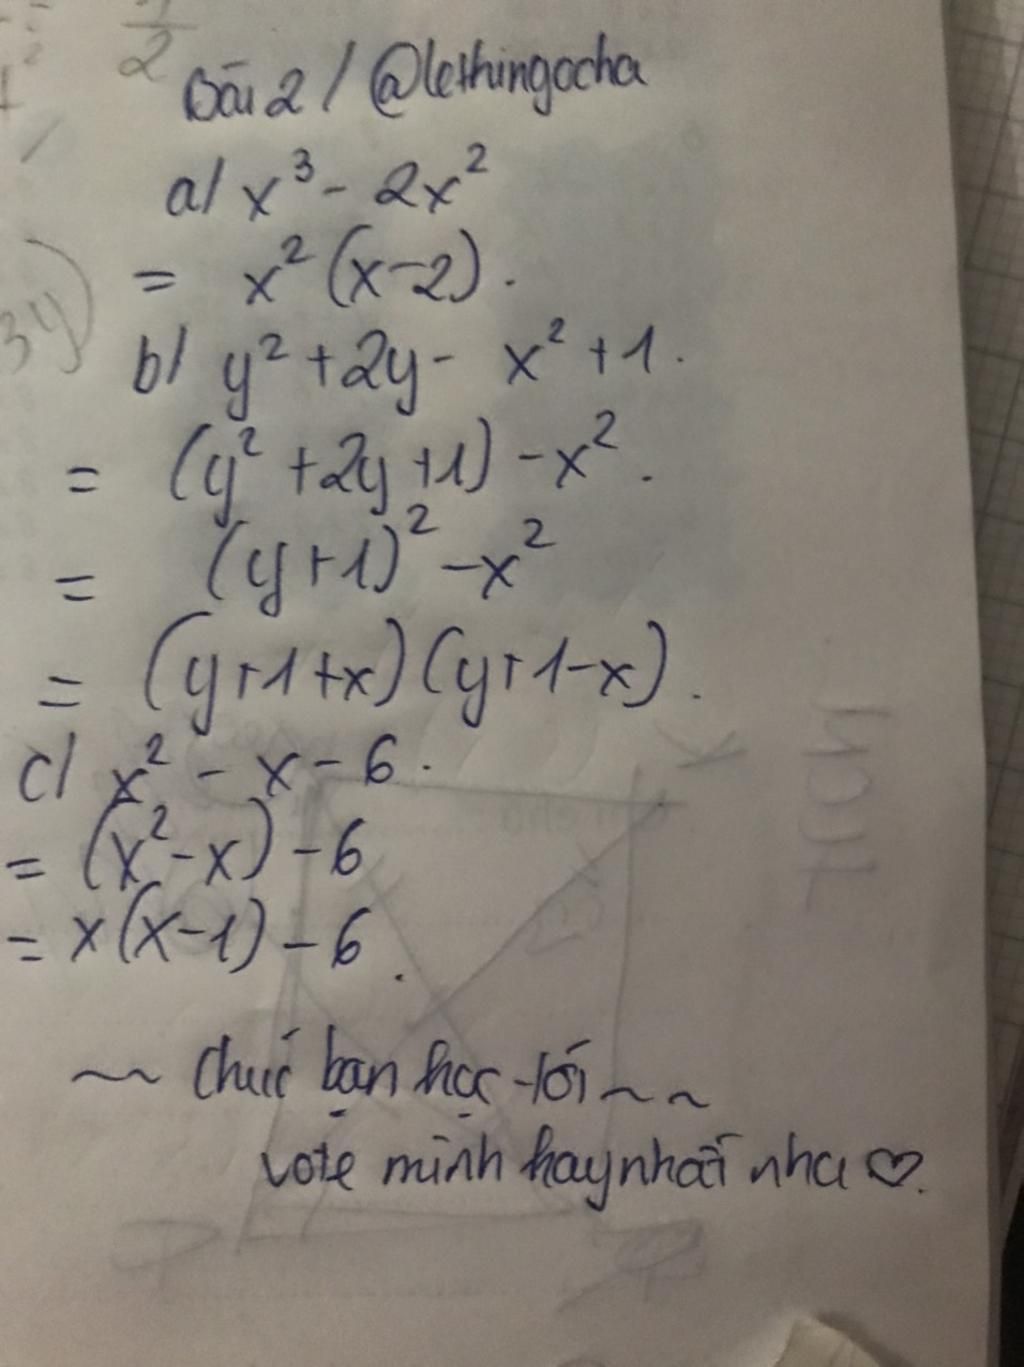 Bài 2 / @lethingocha
a) x³ - 2x²
= x² (x-2).
b) y² + 2y - x² + 1.
= (y² + 2y + 1) - x².
= (y + 1)² - x²
= (y + 1 + x) (y + 1 - x).
c) x² - x - 6.
= (x² - x) - 6
= x (x - 1) - 6.
~~ Chúc bạn học tốt ~~
vote mình hay nhất nha ♡.